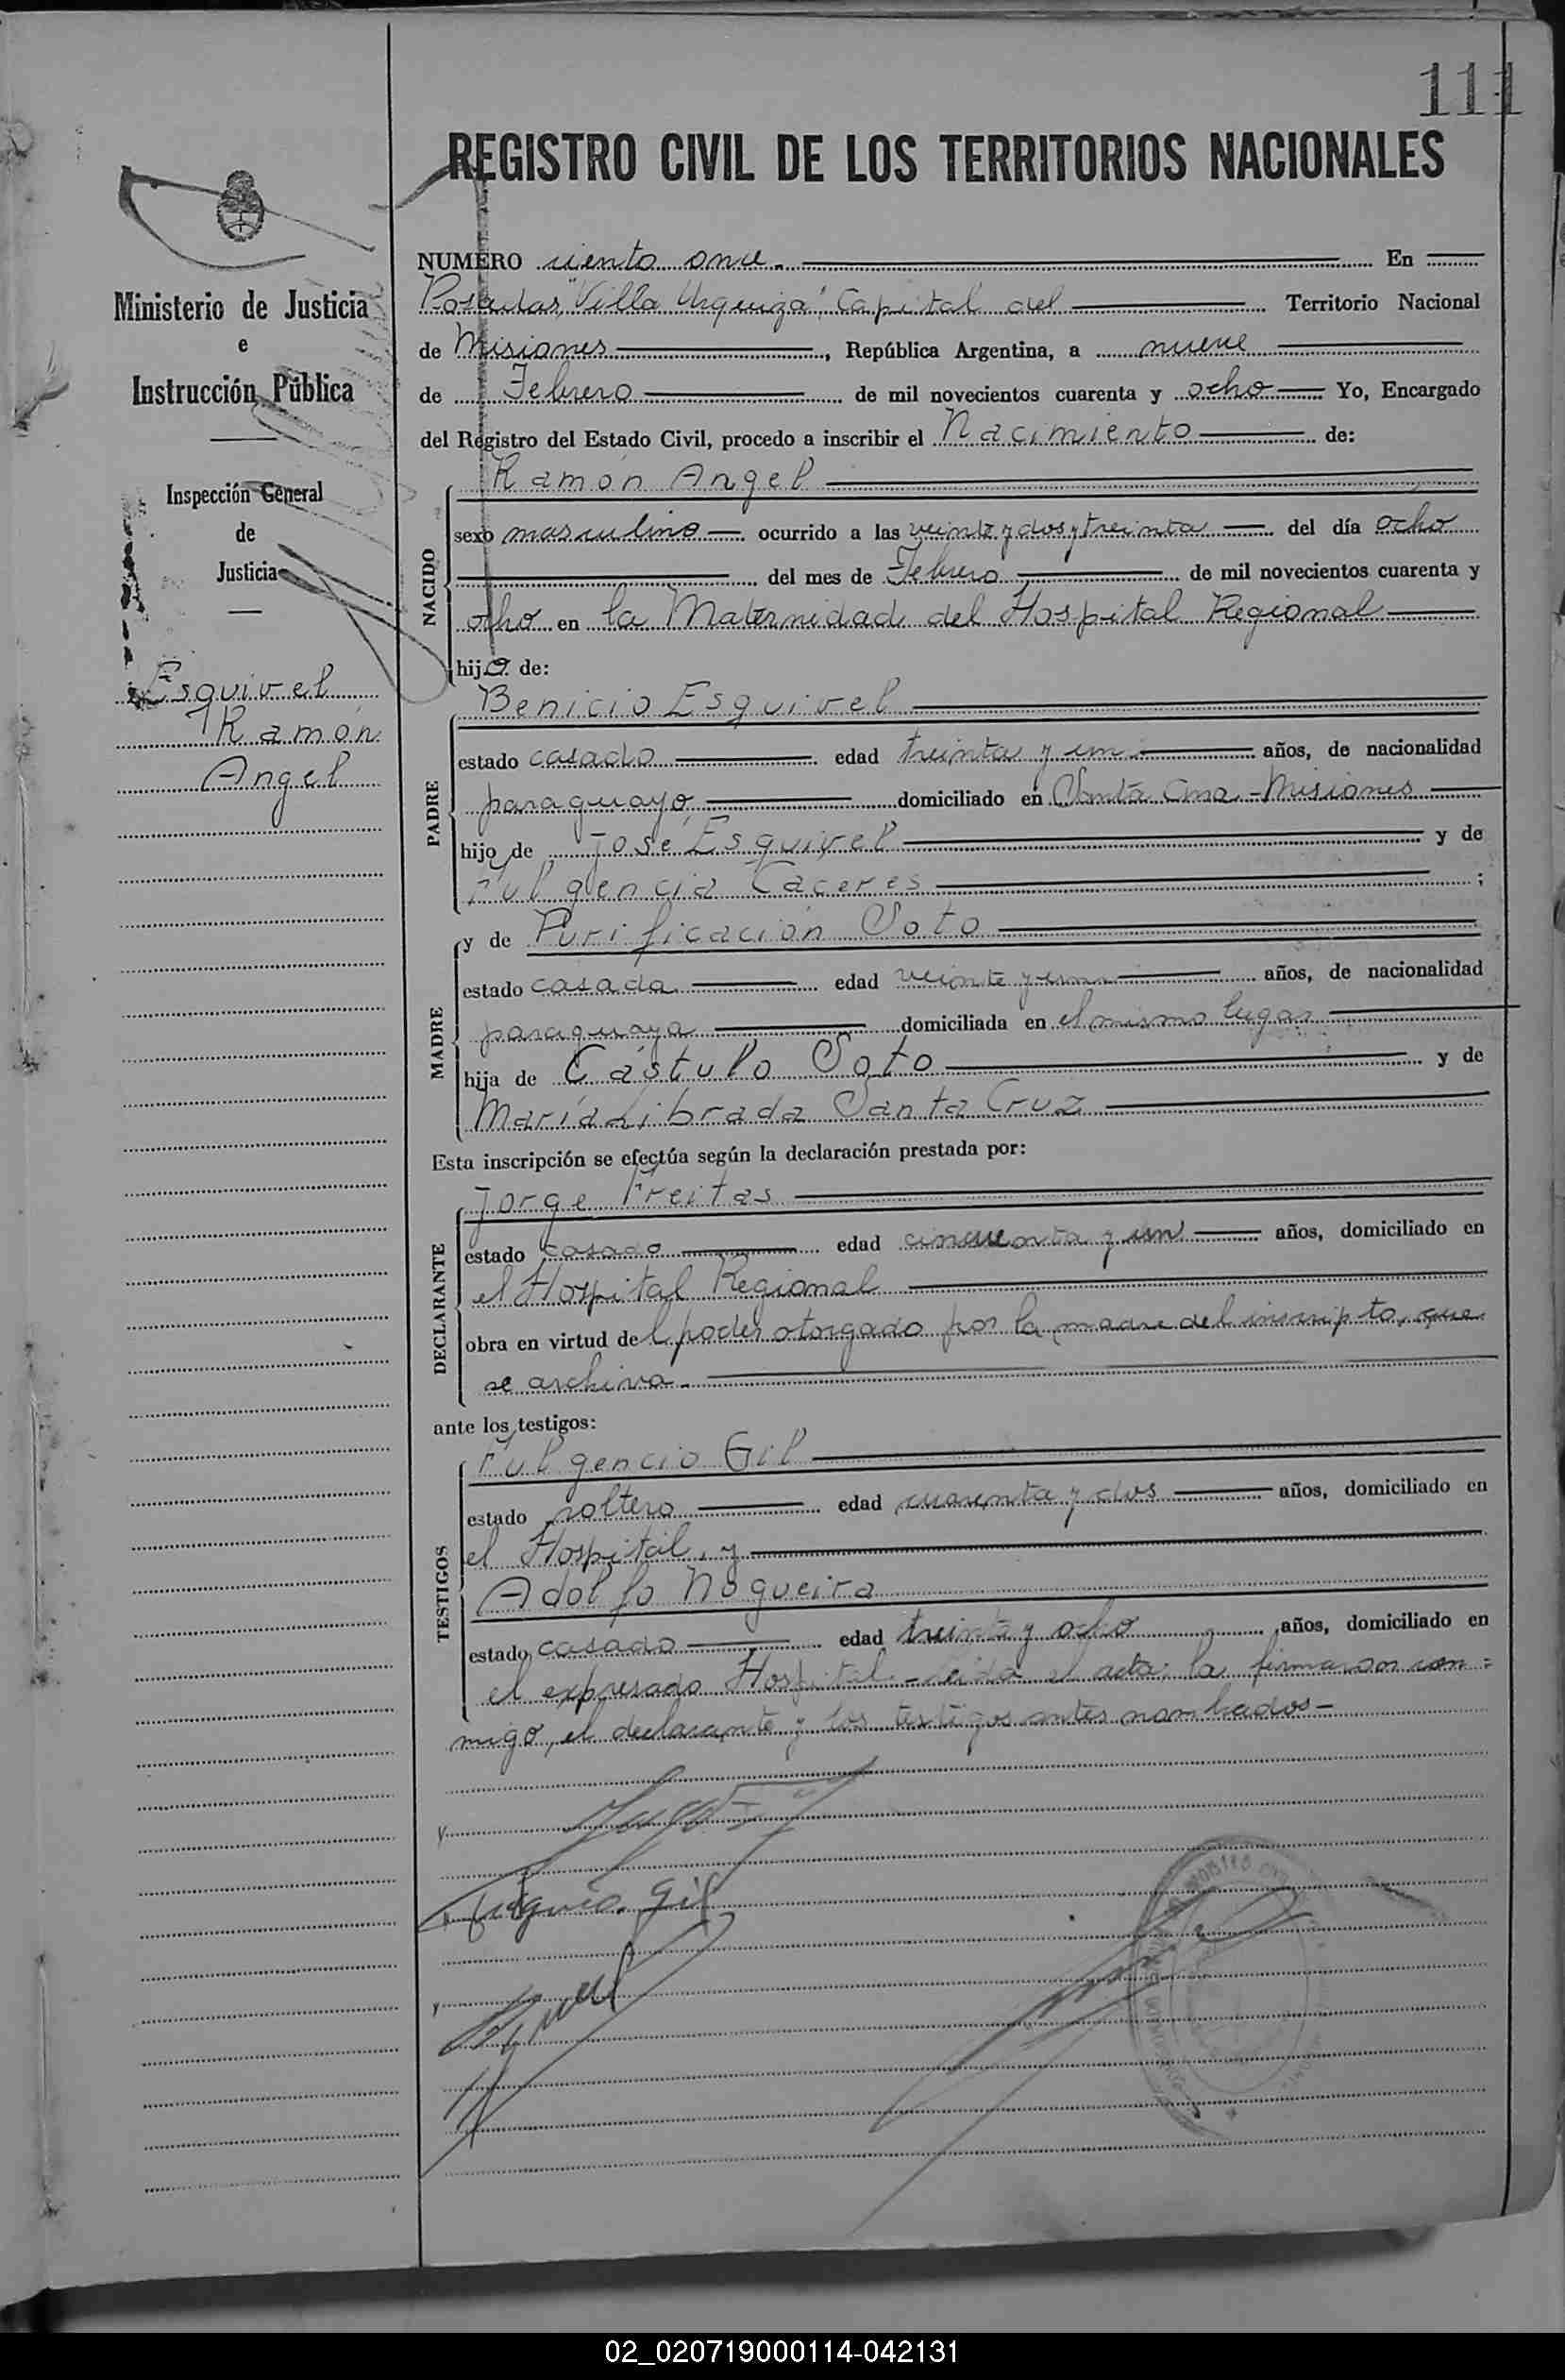 111
REGISTRO CIVIL DE LOS TERRITORIOS NACIONALES
Ministerio de Justicia
e
Instrucción Pública
Inspección General
de
Justicia
Esquivel
Ramón
Angel
NUMERO ciento once. En
Posadas, "Villa Urquiza", Capital del Territorio Nacional
de Misiones, República Argentina, a nueve
de Febrero de mil novecientos cuarenta y ocho Yo, Encargado
del Registro del Estado Civil, procedo a inscribir el Nacimiento de:
NACIDO
Ramón Angel
sexo masculino ocurrido a las veinte y dos y treinta del día ocho
del mes de Febrero de mil novecientos cuarenta y
ocho en la Maternidad del Hospital Regional
hijo de:
PADRE
Benicio Esquivel
estado casado edad treinta y un años, de nacionalidad
paraguayo, domiciliado en Santa Ana - Misiones
hijo de José Esquivel y de
Fulgencia Caceres ;
MADRE
y de Purificación Soto
estado casada edad veinte y un años, de nacionalidad
paraguaya domiciliada en el mismo lugar
hija de Cástulo Soto y de
María Librada Santa Cruz
Esta inscripción se efectúa según la declaración prestada por:
DECLARANTE
Jorge Freitas
estado casado edad cincuenta y un años, domiciliado en
el Hospital Regional
obra en virtud del poder otorgado por la madre del inscripto, que
se archiva.
ante los testigos:
TESTIGOS
Fulgencio Gil
estado soltero edad cuarenta y dos años, domiciliado en
el Hospital, y
Adolfo Nogueira
estado casado edad treinta y ocho años, domiciliado en
el expresado Hospital - leída el acta, la firmaron con=
migo, el declarante y los testigos antes nombrados -
Fulgencio Gil
02_020719000114-042131